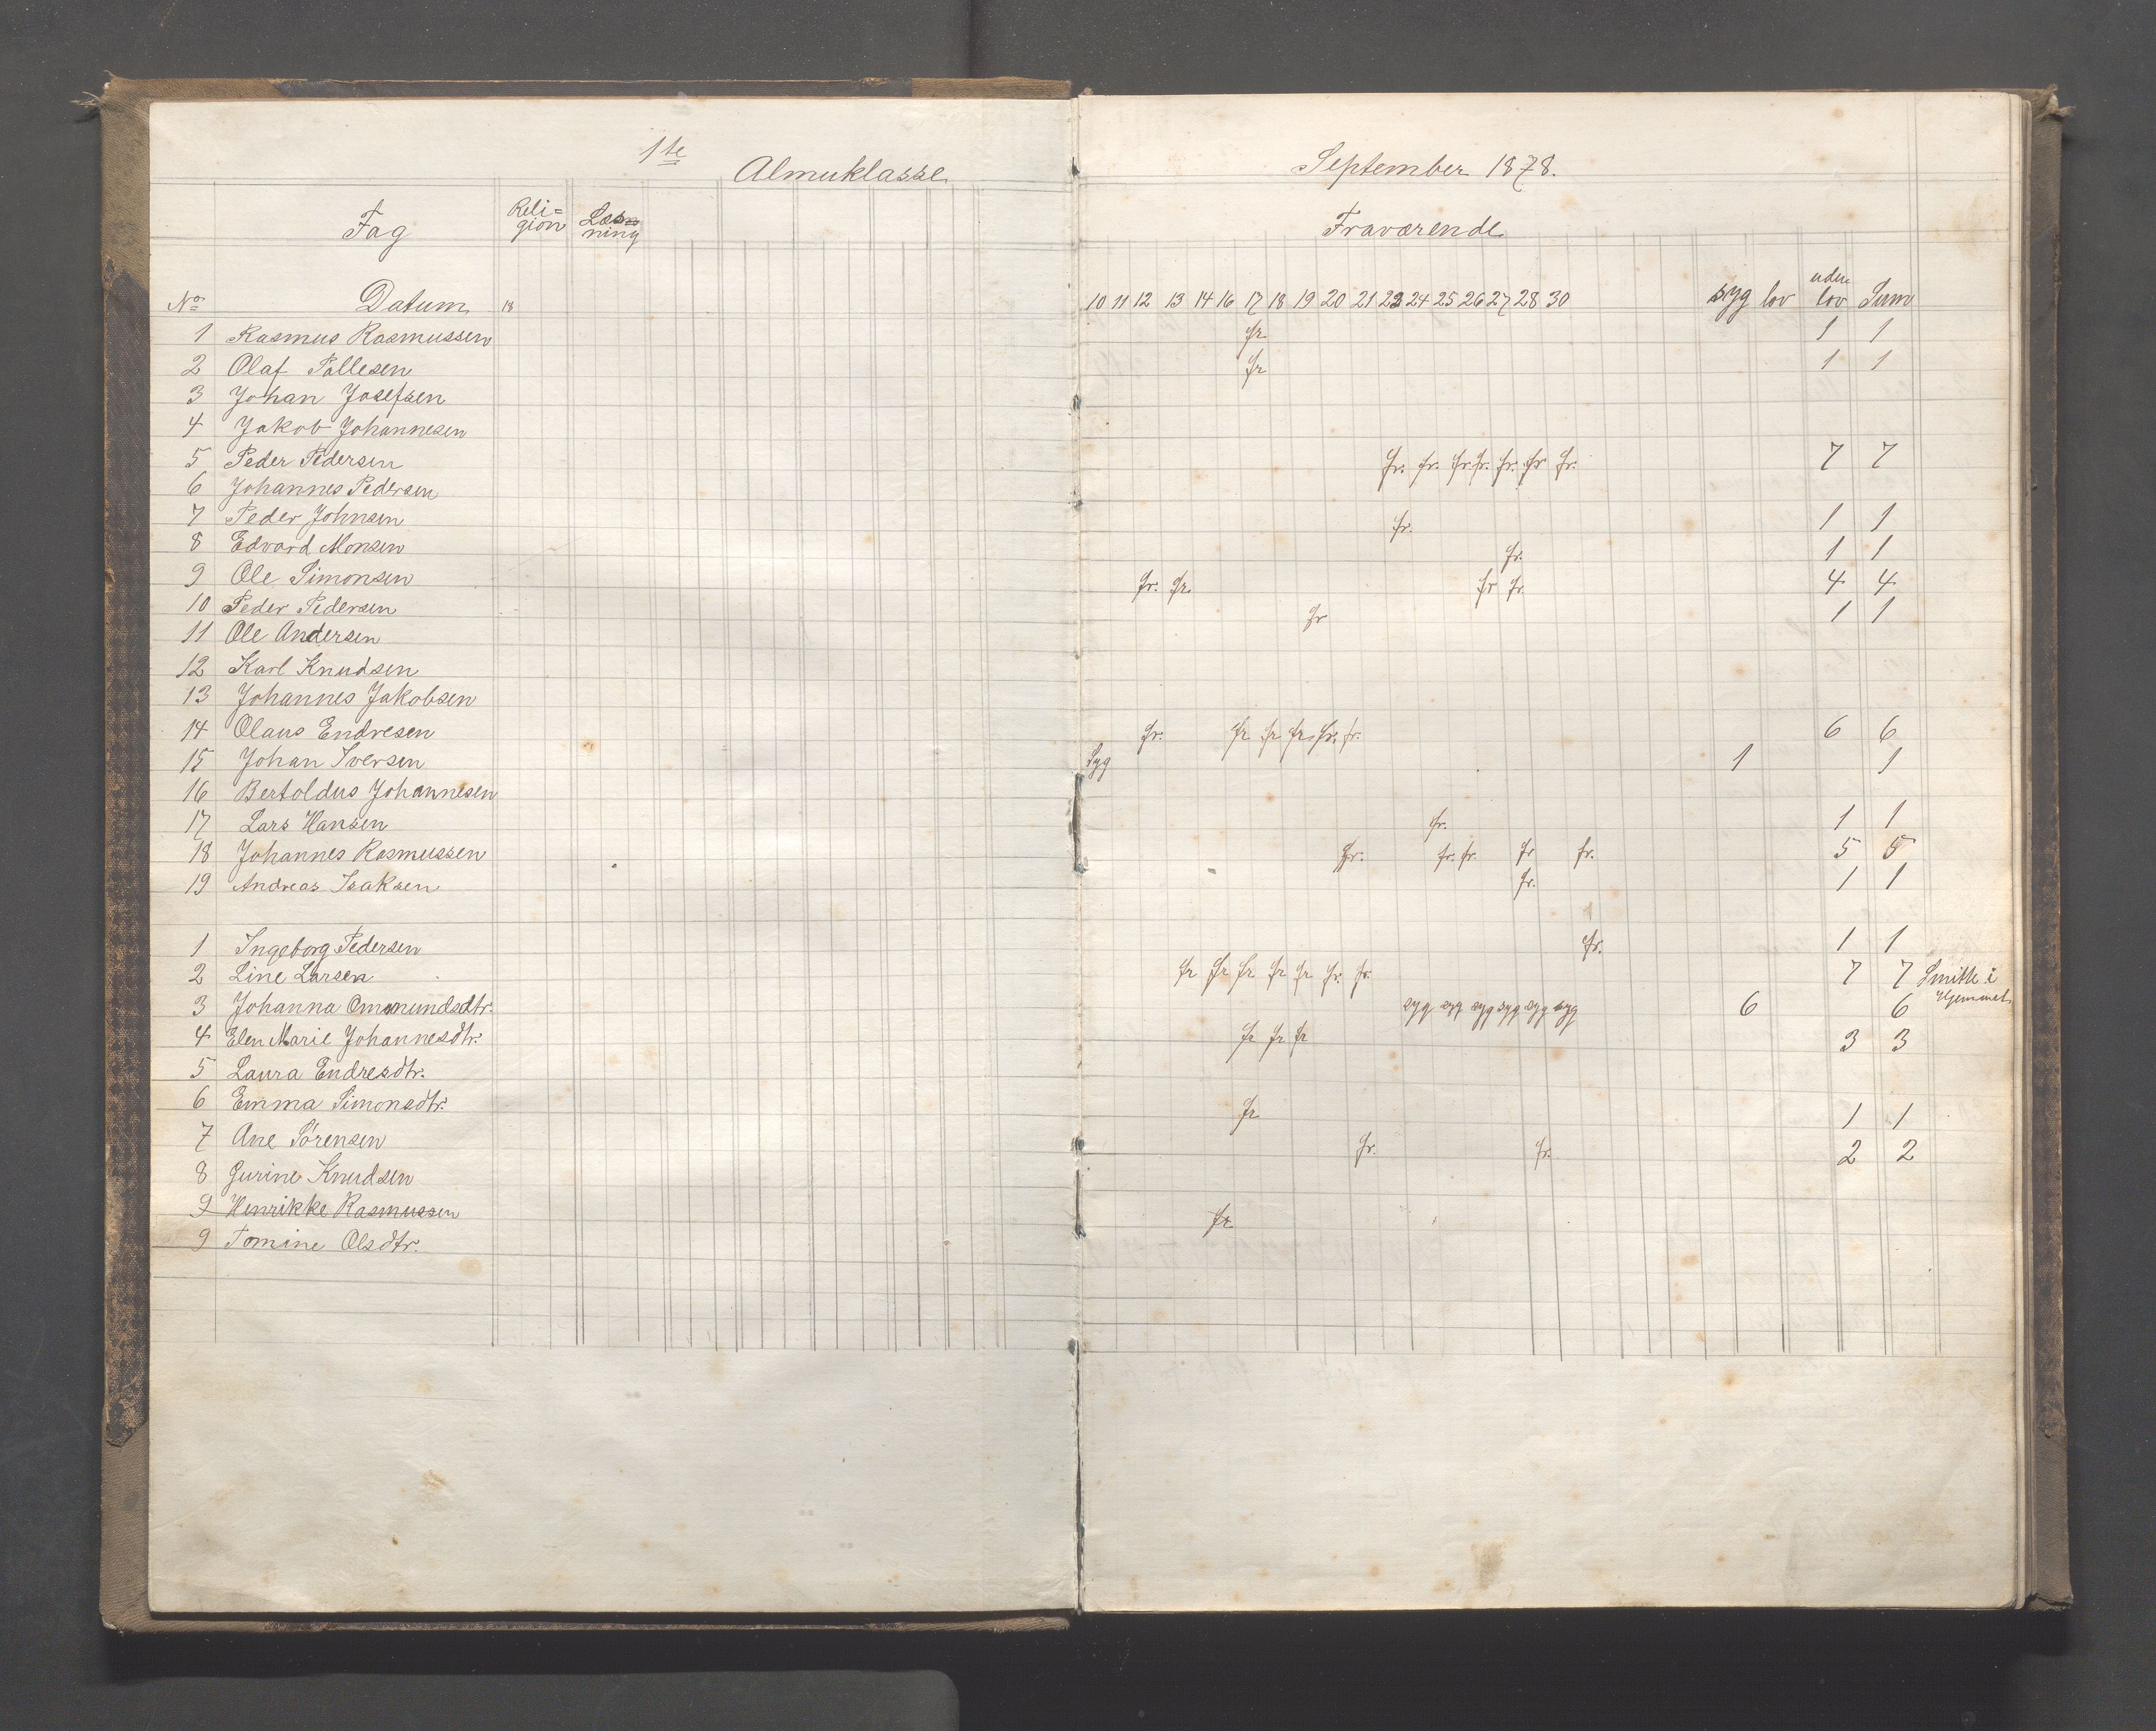 1te
Almuklasse
Fag Reli=
gion Læs
ning
No Datum 18
1 Rasmus Rasmussen
2 Olaf Pallesen
3 Johan Josefsen
4 Jakob Johannesen
5 Peder Pedersen
6 Johannes Pedersen
7 Peder Johnsen
8 Edvard Monsen
9 Ole Simonsen
10 Peder Pedersen
11 Ole Andersen
12 Karl Knudsen
13 Johannes Jakobsen
14 Olaus Endresen
15 Johan Iversen
16 Bertoldus Johannesen
17 Lars Hansen
18 Johannes Rasmussen
19 Andreas Isaksen
1 Ingeborg Pedersen
2 Line Larsen
3 Johanna Ommundsdtr.
4 Elen Marie Johannesdtr.
5 Laura Endresdtr.
6 Emma Simonsdtr.
7 Ane Sörensen
8 Gurine Knudsen
9 Henrikke Rasmussen
9 Tomine Olsdtr.
September 1878.
Fraværende
10 11 12 13 14 16 17 18 19 20 21 23 24 25 26 27 28 30 syg lov uden lov Sum
fr 1 1
fr 1 1
fr. fr. fr fr. fr. fr fr. 7 7
fr. 1 1
fr. 1 1
fr. fr. fr fr. 4 4
fr 1 1
fr. fr fr fr. fr. fr. 6 6
Syg 1 1
fr. 1 1
fr. fr. fr. fr fr. 5 5
fr. 1 1
fr. 1 1
fr fr fr fr fr fr. fr. 7 7 Smitte i
syg syg syg syg syg syg 6 6 Hjemmet
fr fr fr 3 3
fr 1 1
fr. fr. 2 2
fr